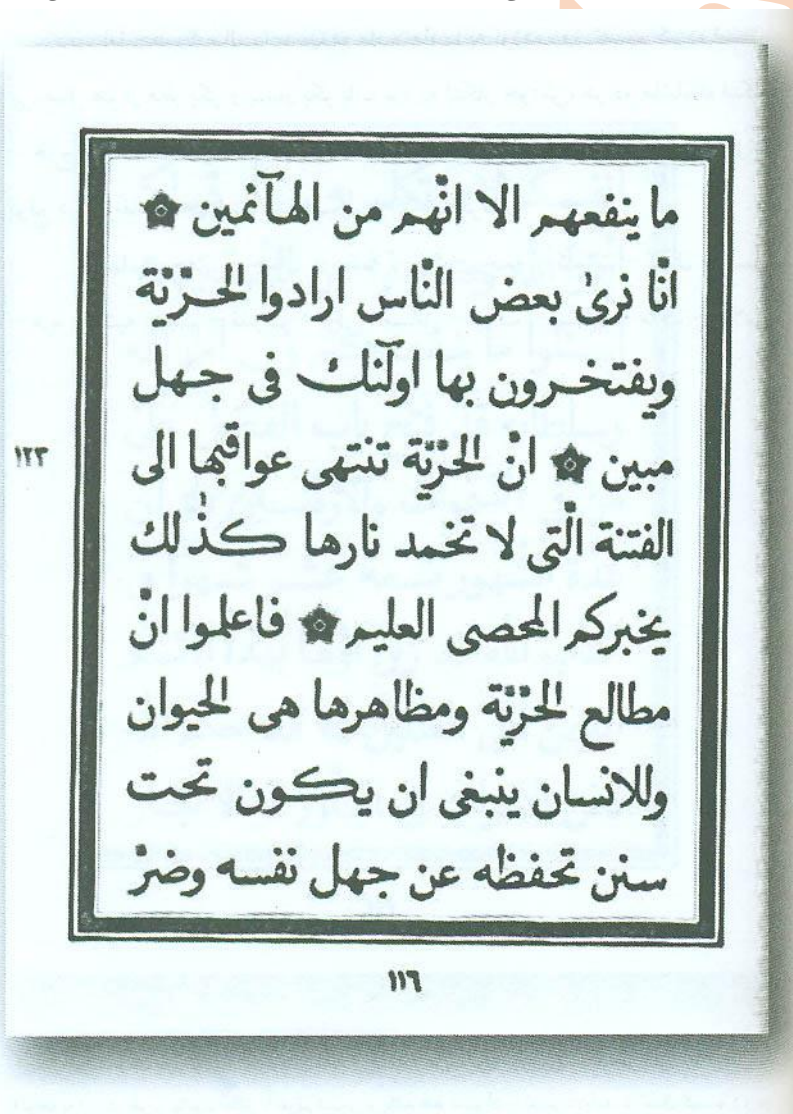 ما ينفعهم الا انّهم من الهآئمين ۞
انّا نرىٰ بعض النّاس ارادوا الحرّيّة
ويفتخرون بها اولٓئك فى جهل
مبين ۞ انّ الحرّيّة تنتهى عواقبها الى
الفتنة الّتى لا تخمد نارها كذٰلك
يخبركم المحصى العليم ۞ فاعلموا انّ
مطالع الحرّيّة ومظاهرها هى الحيوان
وللانسان ينبغى ان يكون تحت
سنن تحفظه عن جهل نفسه وضرّ
١٢٣
١١٦